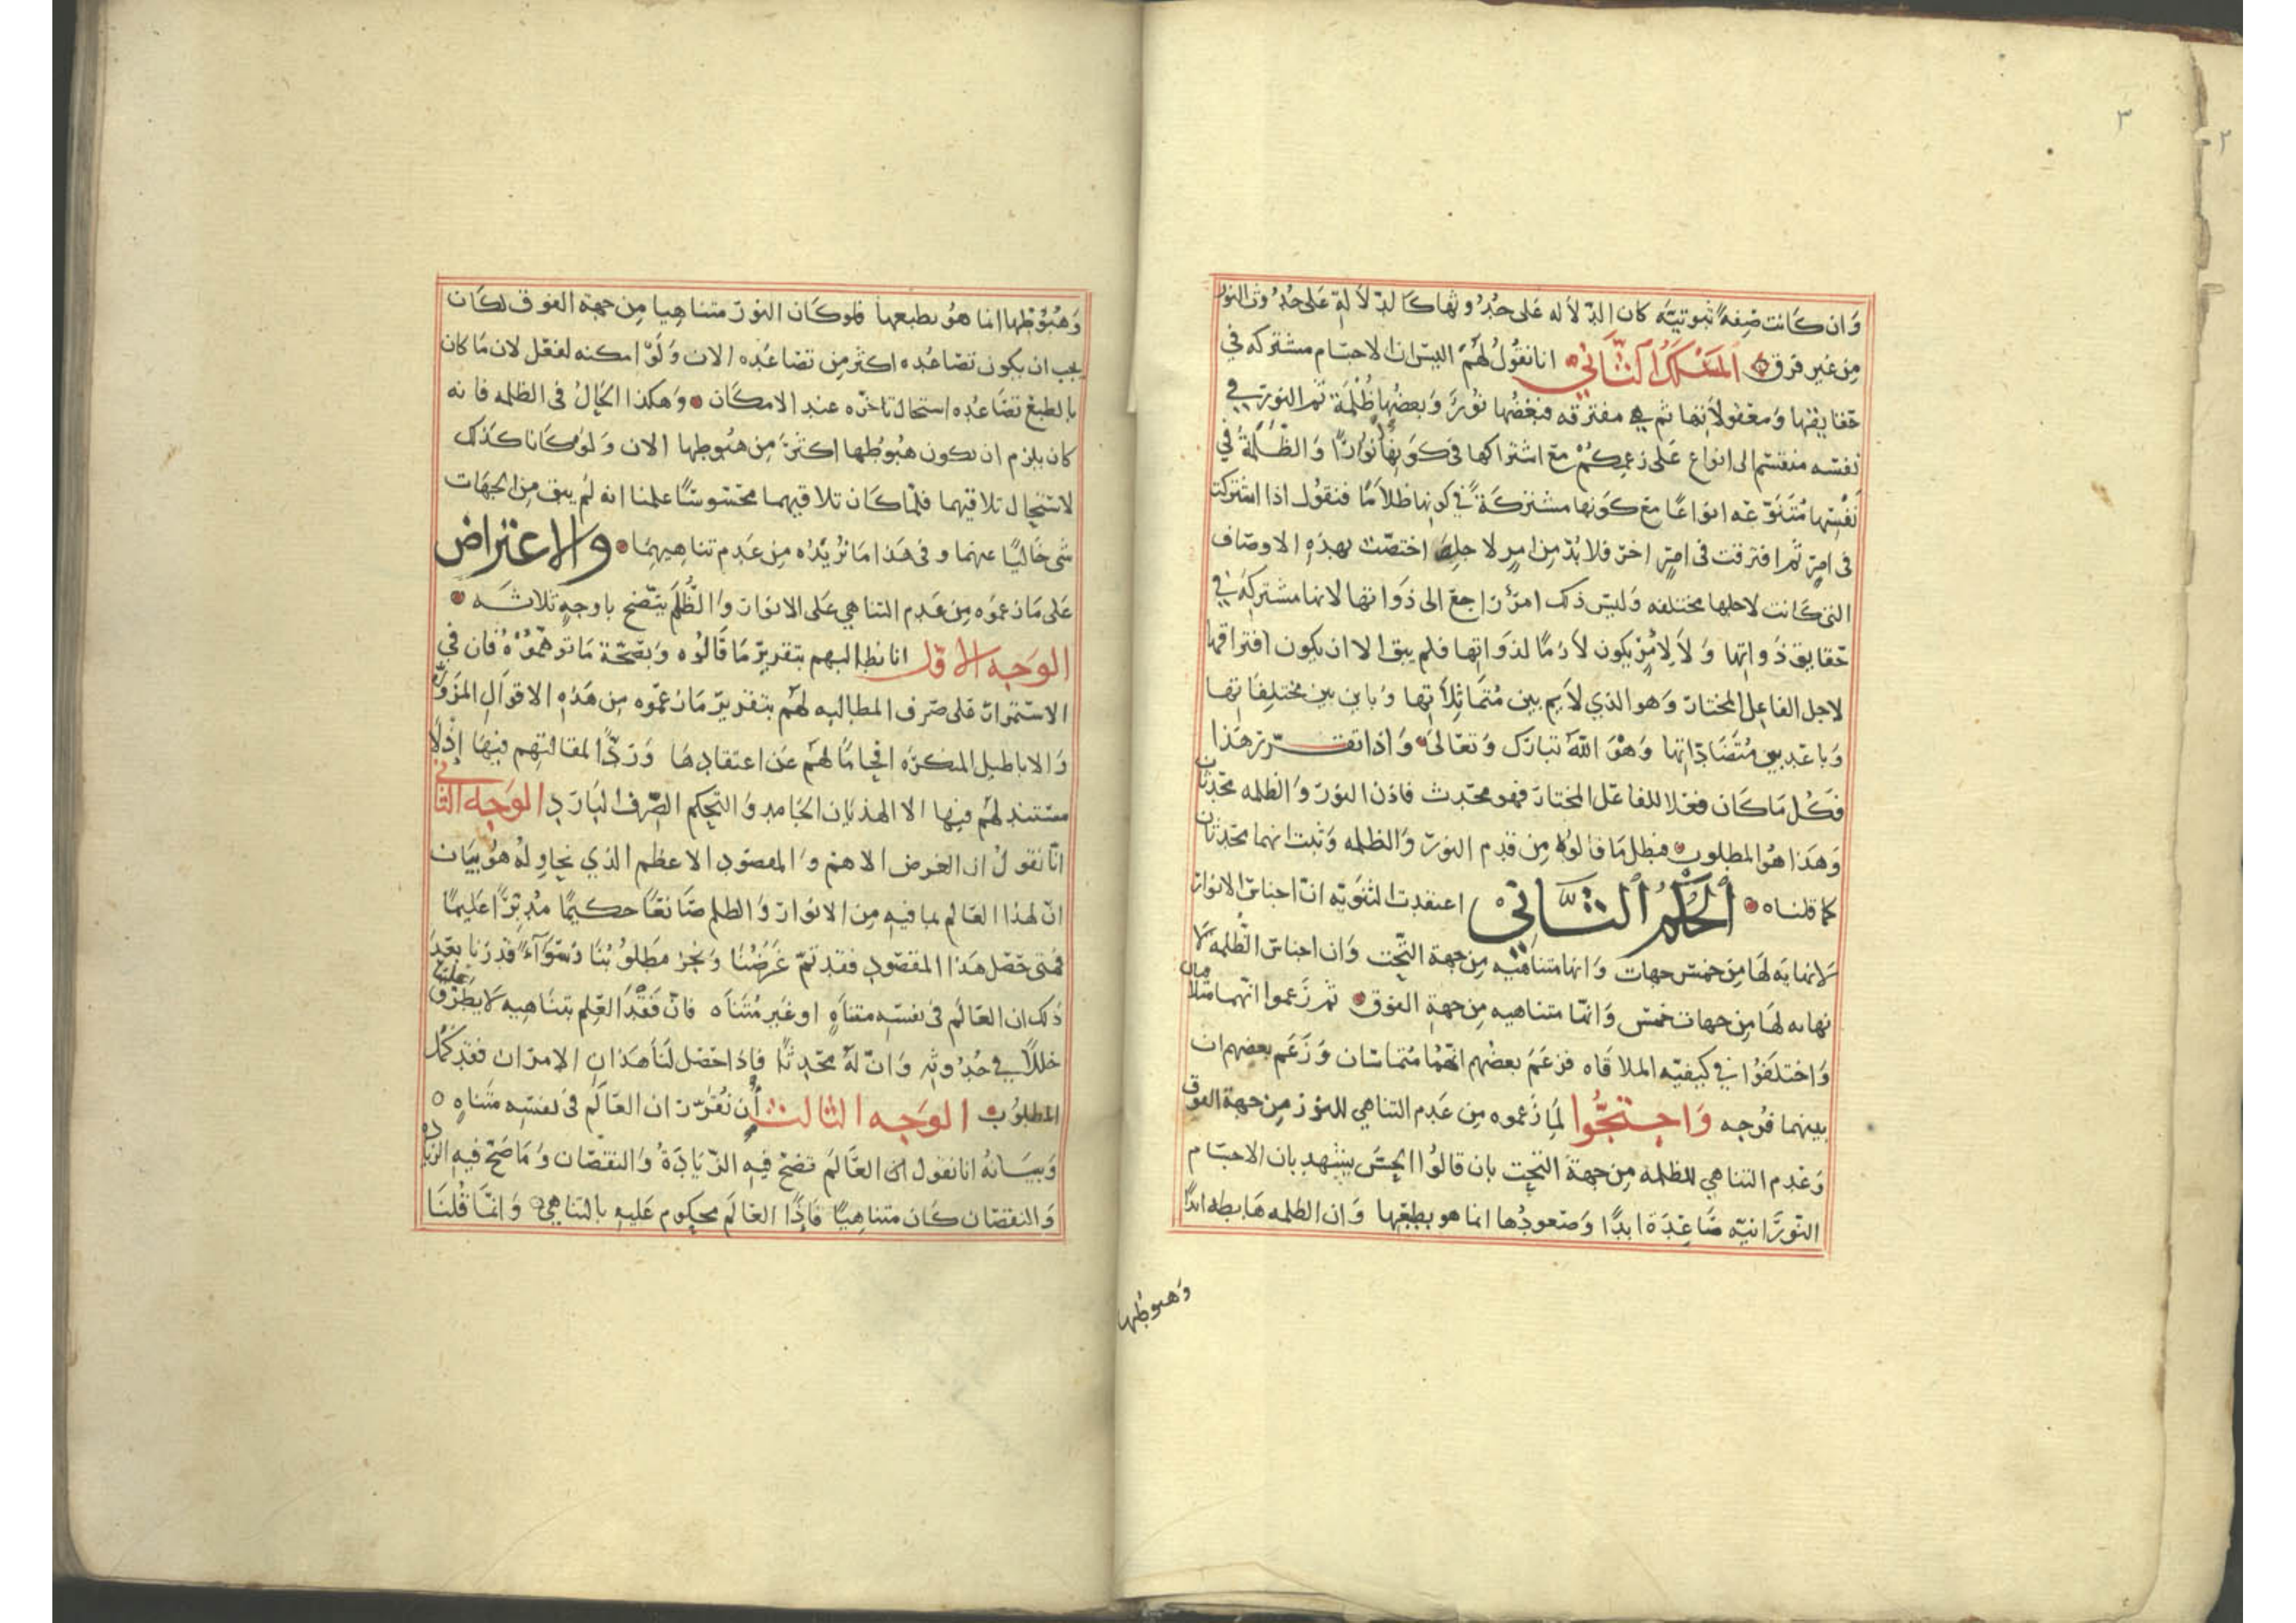 ٣
٢
وان كانت صفة ثبوتيه كان الدلاله على حدوثها كالدلالة على حدوث النور
من غير فرق المسلك الثاني انا نقول لهم اليس ان الاجسام مشتركه في
حقايقها ومعقولاتها ثم هي مفترقه فبعضها نور وبعضها ظلمة ثم النور في
نفسه منقسم الى انواع على زعمكم مع اشتراكها في كونها انوارا والظلمة في
نفسها متنوعه انواعا مع كونها مشتركة في كونها ظلاما فنقول اذا اشتركت
في امر ثم افترقت في امر اخر فلا بد من امر لاجله اختصت بهذه الاوصاف
التي كانت لاجلها مختلفه وليس ذلك امر راجع الى ذواتها لانها مشتركه في
حقايق ذواتها ولا لامر يكون لازما لذواتها فلم يبق الا ان يكون افتراقها
لاجل الفاعل المختار وهو الذي لايم بين متماثلاتها وباين بين مختلفاتها
وباعد بين متضاداتها وهو الله تبارك وتعالى واذا تقرر هذا
فكل ما كان فعلا للفاعل المختار فهو محدث فاذن النور والظلمه محدثان
وهذا هو المطلوب فبطل ما قالوه من قدم النور والظلمه وثبت انهما محدثان
كما قلناه الحكم الثاني اعتقدت الثنويه ان اجناس الانوار
لانهايه لها من خمس جهات وانها متناهيه من جهة التحت وان اجناس الظلمه لا
نهايه لها من جهات خمس وانها متناهيه من جهة الفوق ثم زعموا انهما متلاقيان
واختلفوا في كيفيه الملاقاه فزعم بعضهم انهما متماسان وزعم بعضهم ان
بينهما فرجه واحتجوا لما زعموه من عدم التناهي للنور من جهة الفوق
وعدم التناهي للظلمه من جهة التحت بان قالوا الحس يشهد بان الاجسام
النورانيه صاعدة ابدا وصعودها انما هو بطبعها وان الظلمه هابطه ابدا
وهبوطها
وهبوطها انما هو بطبعها فلو كان النور متناهيا من جهة الفوق لكان
يجب ان يكون تصاعده اكثر من تصاعده الان ولو امكنه لفعل لان ما كان
بالطبع تصاعده استحال تاخره عند الامكان وهكذا الحال في الظلمه فانه
كان يلزم ان يكون هبوطها اكثر من هبوطها الان ولو كانا كذلك
لاستحال تلاقيهما فلما كان تلاقيهما محسوسا علمنا انه لم يبق من الجهات
شي خاليا عنهما وفي هذا ما نريده من عدم تناهيهما والاعتراض
على ما زعموه من عدم التناهي على الانوار والظلم يتضح باوجه ثلاثه
الوجه الاول انا نطالبهم بتقرير ما قالوه وبصحة ما توهموه فان في
الاستمرار على صرف المطالبه لهم بتقرير ما زعموه من هذه الاقوال المزوره
والاباطيل المنكره افحاما لهم عن اعتقادها وردا لمقالتهم فيها اذ لا
مستند لهم فيها الا الهذيان الجامد والتحكم الصرف البارد الوجه الثاني
انا نقول ان الغرض الاهم والمقصود الاعظم الذي نحاوله هو بيان
ان لهذا العالم بما فيه من الانوار والظلم صانعا حكيما مدبرا عليما
فمتى حصل هذا المقصود فقد تم غرضنا ونجز مطلوبنا وسواء قدرنا بعد
ذلك ان العالم في نفسه متناه او غير متناه فان فقد العلم بتناهيه لا يطرق علينا
خللا في حدوثه وان له محدثا فاذا حصل لنا هذان الامران فقد كمل
المطلوب الوجه الثالث ان نقرر ان العالم في نفسه متناه
وبيانه انا نقول ان العالم تصح فيه الزيادة والنقصان وما صح فيه الزياده
والنقصان كان متناهيا فاذا العالم محكوم عليه بالتناهي وانما قلنا